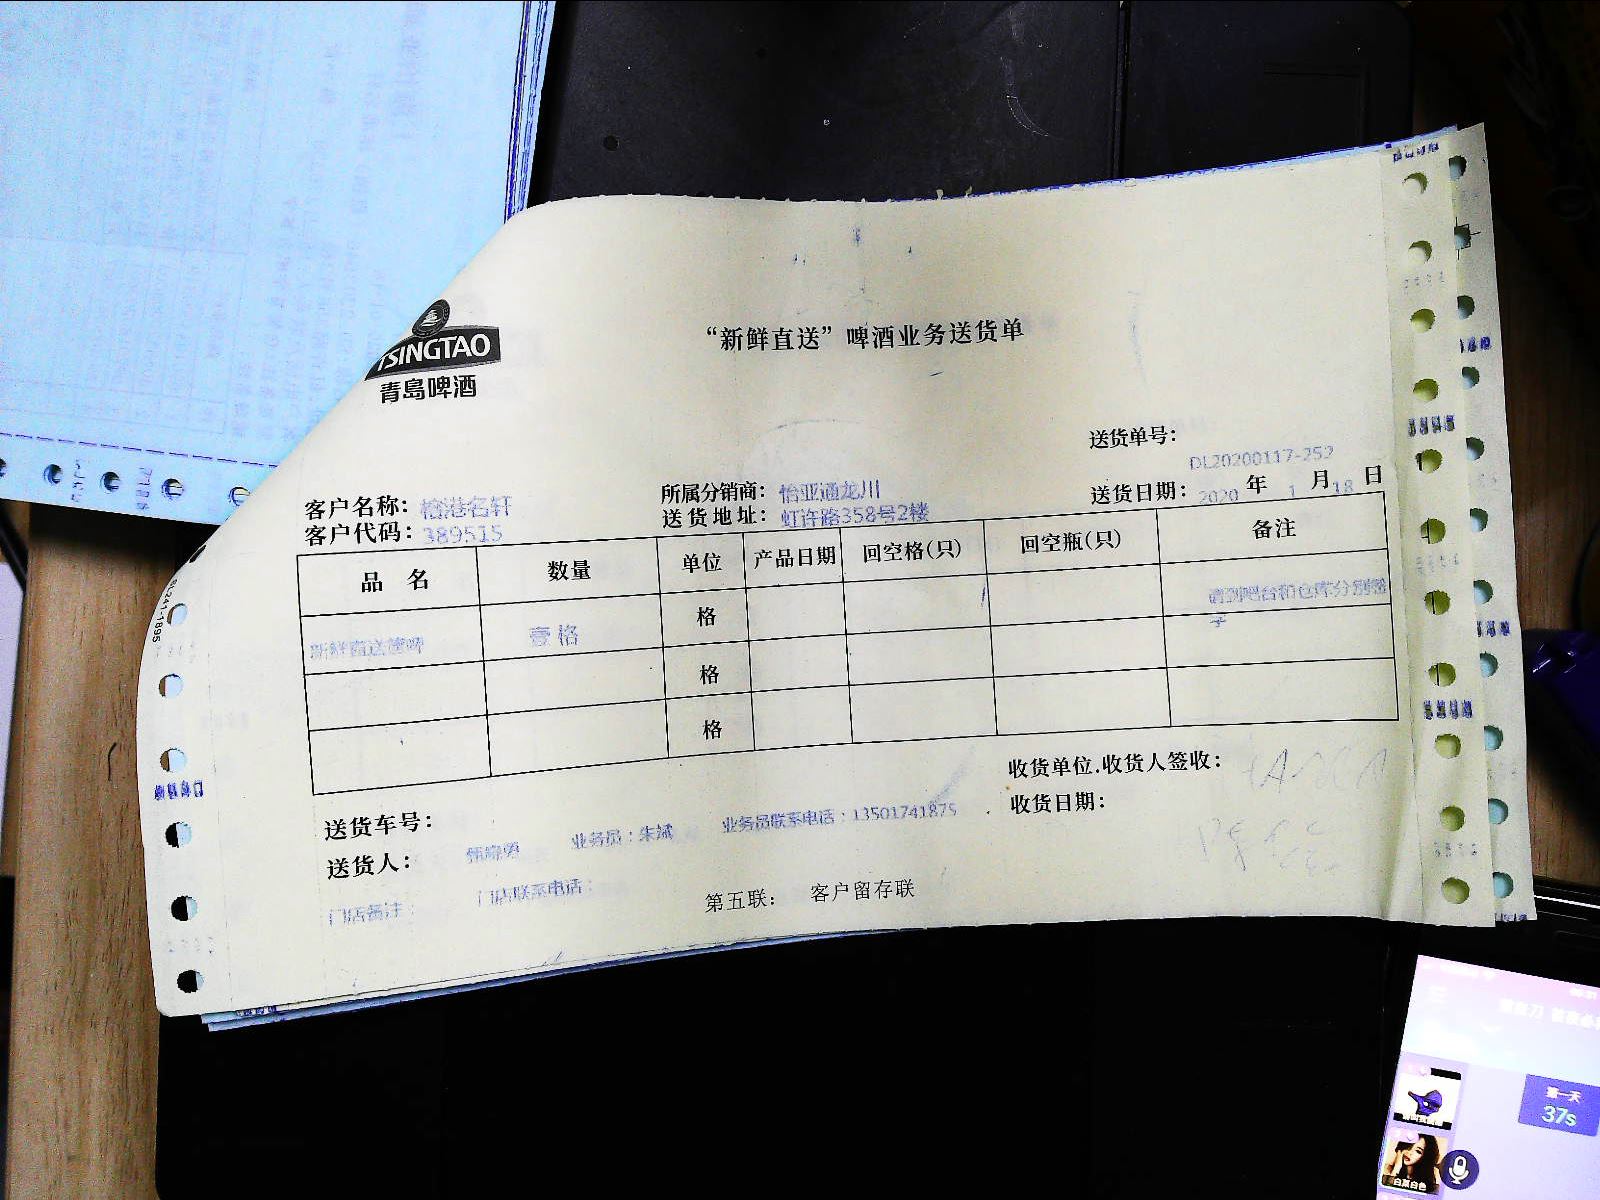 TSINGTAO
青岛啤酒
“新鲜直送”啤酒业务送货单
送货单号:
DL20200117-252
客户名称: 港名轩
所属分销商: 怡亚通龙川
送货日期: 2020 年 1 月 18 日
客户代码: 389515
送货地址: 虹许路358号2楼
品 名 数量 单位 产品日期 回空格(只) 回空瓶(只) 备注
新鲜直送 壹格 格 请到吧台和仓库分别签
字
格
格
收货单位.收货人签收:
收货日期:
送货车号:
送货人: 业务员:朱斌 业务员联系电话:13501741875
门店备注: 门店联系电话:
第五联: 客户留存联
37s